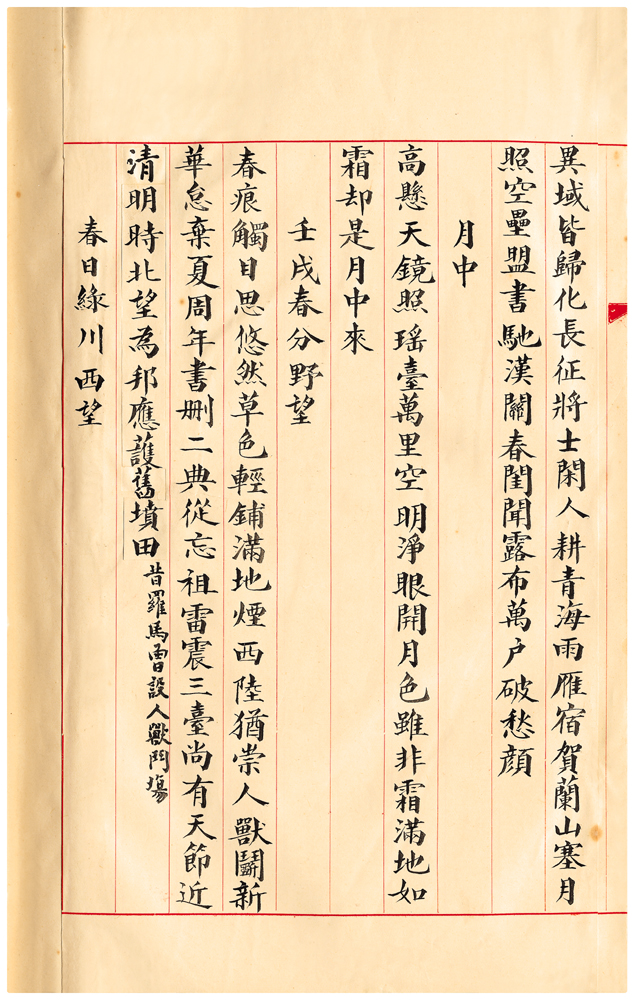 異域皆歸化長征將士閑人耕青海雨雁宿賀蘭山塞月
照空壘盟書馳漢關春閨聞露布萬户破愁顔
月中
高懸天鏡照瑶臺萬里空明淨眼開月色雖非霜滿地如
霜却是月中來
壬戌春分野望
春痕觸目思悠然草色輕鋪滿地煙西陸猶崇人獸鬭新
華怠棄夏周年書删二典從忘祖雷震三臺尚有天節近
清明時北望為邦應護舊墳田昔羅馬曾設人獸鬥場
春日緑川西望